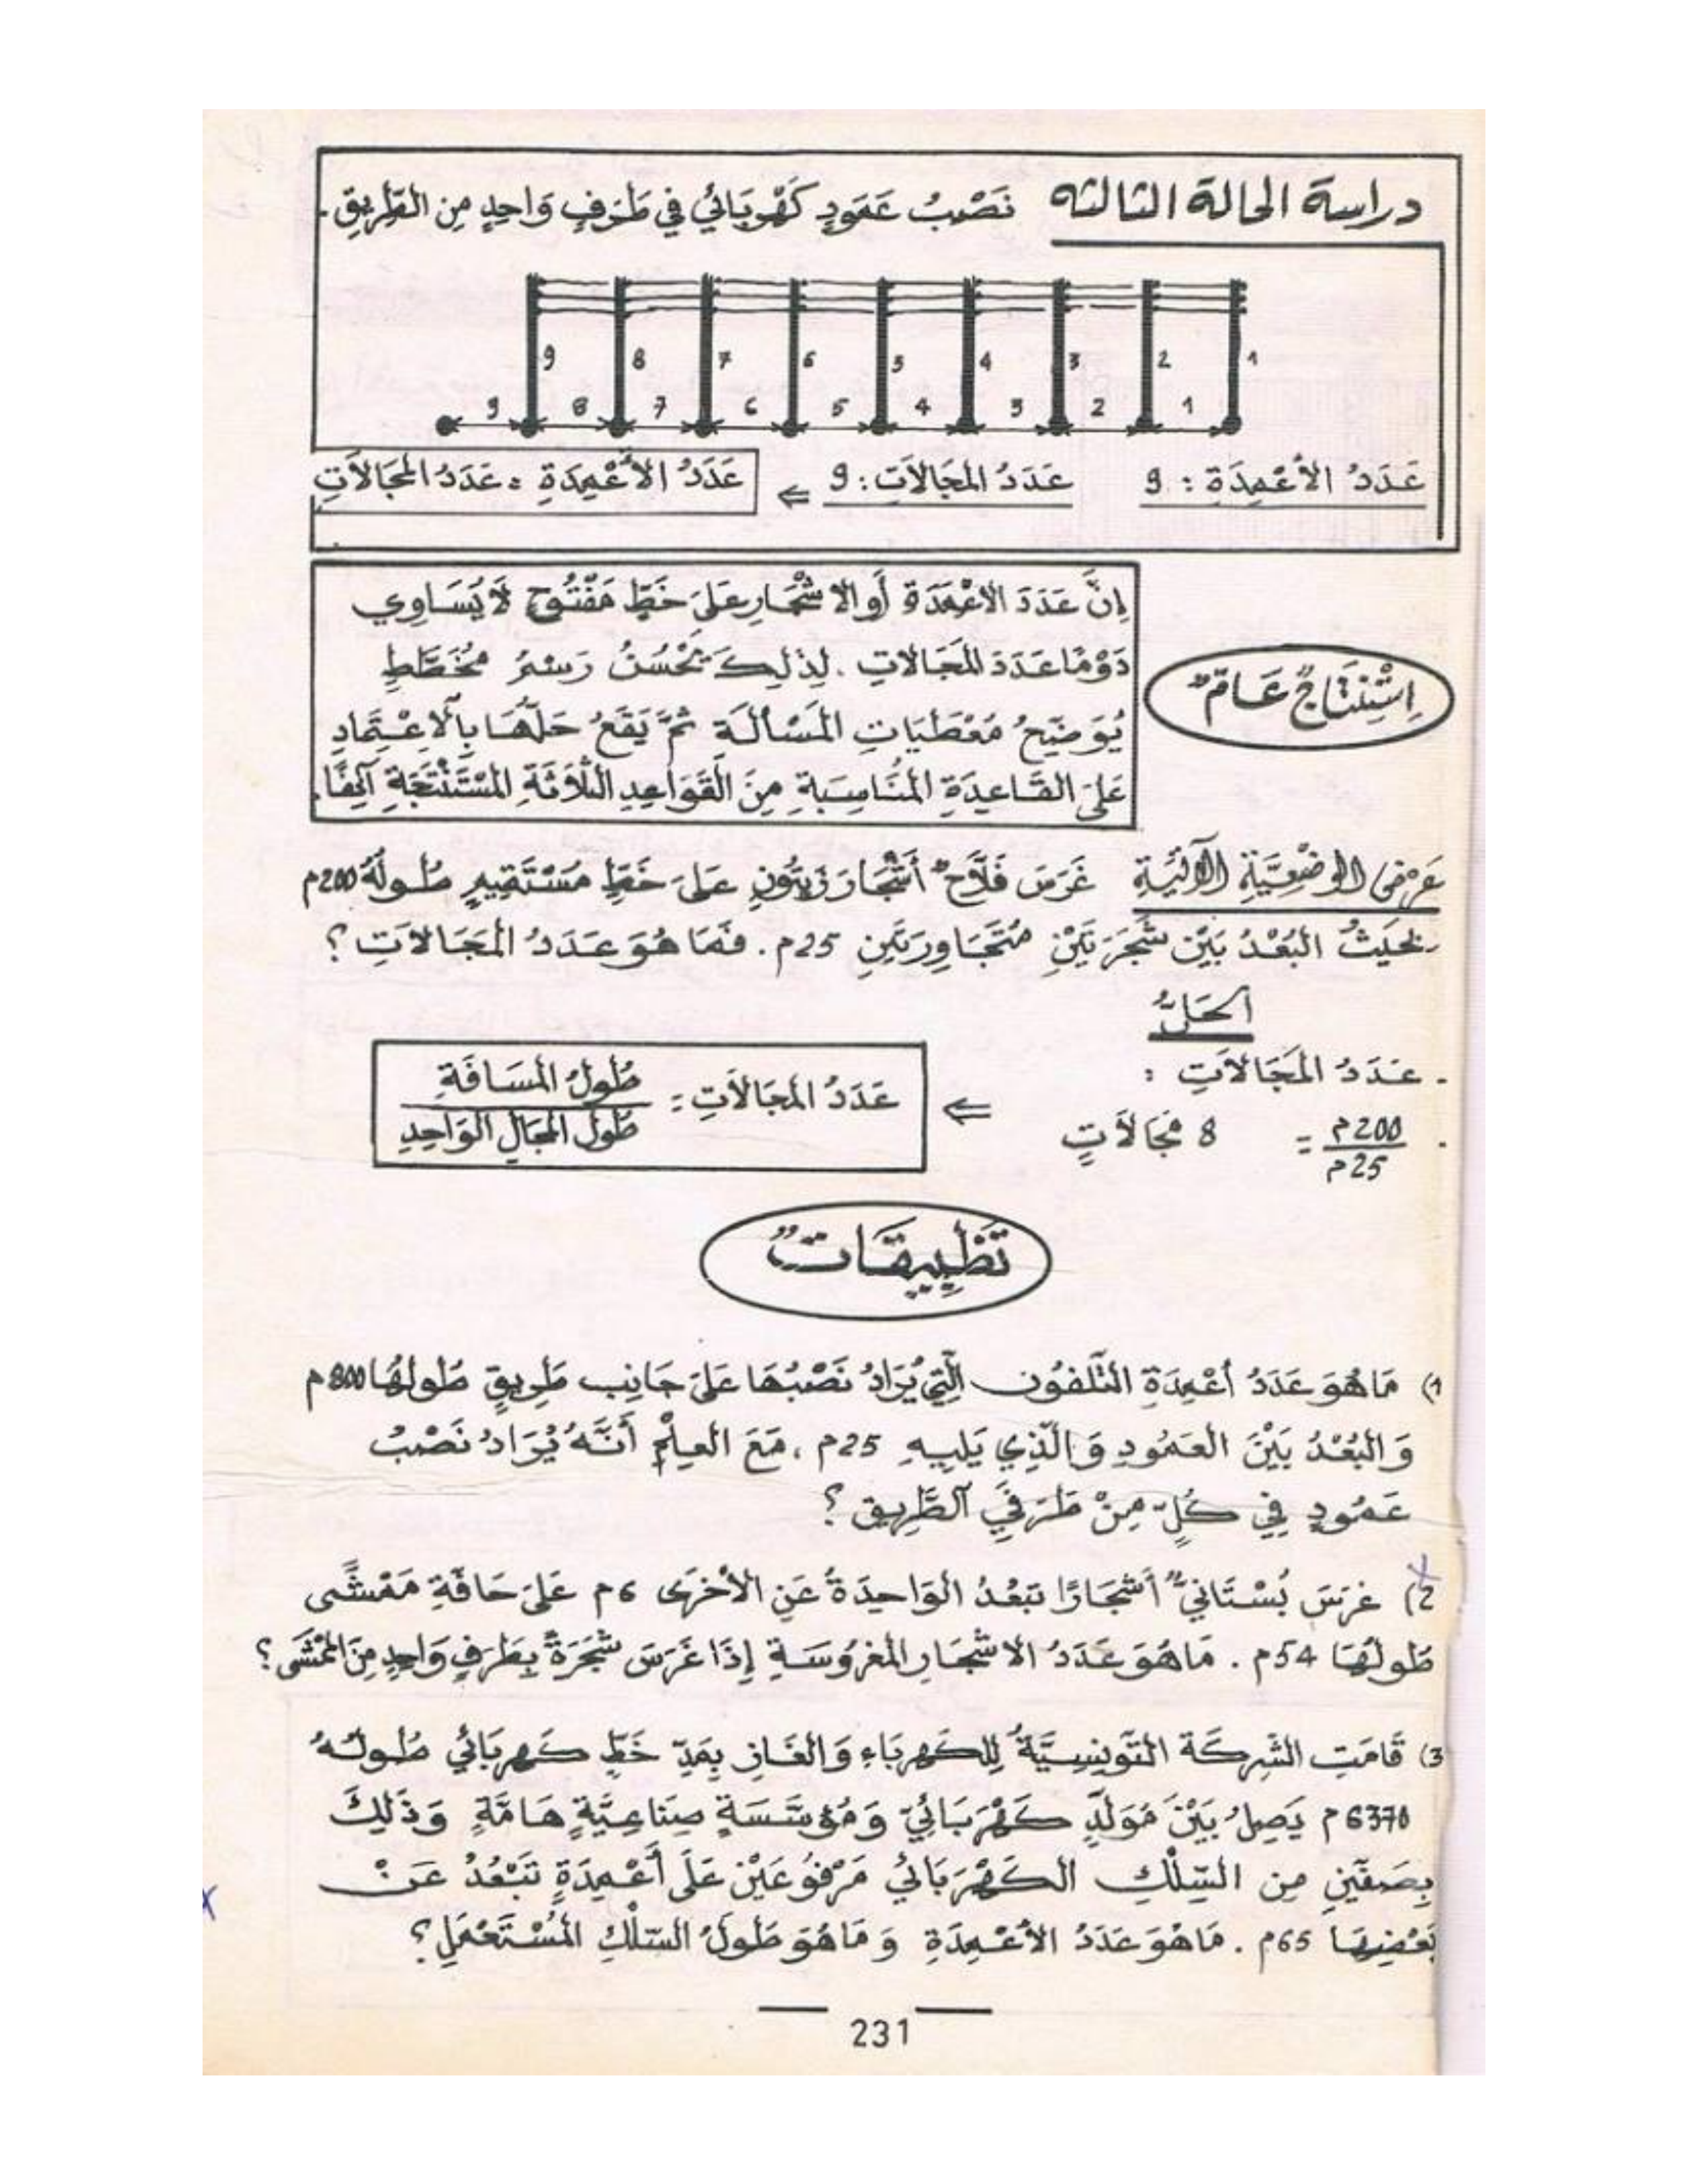 دراسة الحالة الثالثه نَصْبُ عَمُودٍ كَهْرَبَائِي فِي طَرَفٍ وَاحِدٍ مِن الطَّرِيقِ.
9 8 7 6 5 4 3 2 1
9 8 7 6 5 4 3 2 1
عَدَدُ الأَعْمِدَةِ : 9 عَدَدُ المَجَالاَتِ : 9 ⇐ عَدَدُ الأَعْمِدَةِ = عَدَدُ المَجَالاَتِ
إِنَّ عَدَدَ الاعْمَدَةِ أَو الاشْجَارِ عَلَىَ خَطٍّ مَفْتُوحٍ لاَ يُسَاوِي
دَوْمًا عَدَدَ المَجَالاتِ . لِذَلِكَ يَحْسُنُ رَسْمُ مُخَطَّطٍ
يُوَضِّحُ مُعْطَيَاتِ المَسْأَلَةِ ثُمَّ يَقَعُ حَلُّهَا بِالاِعْتِمَادِ
عَلَىَ القَاعِدَةِ المُنَاسِبَةِ مِنَ القَوَاعِدِ الثَّلاَثَةِ المُسْتَنْتَجَةِ آنِفًا.
اِسْتِنْتَاجٌ عَامٌّ
عَرْضُ الوَضْعِيَّةِ الآتِيَةِ غَرَسَ فَلاَّحٌ أَشْجَارَ زَيْتُونٍ عَلَىَ خَطٍّ مُسْتَقِيمٍ طُولُهُ 200م
بحَيْثُ البُعْدُ بَيْنَ شَجَرَتَيْنِ مُتَجَاوِرَتَيْنِ 25م . فَمَا هُوَ عَدَدُ المَجَالاَتِ ؟
الحَلُّ
. عَدَدُ المَجَالاَتِ :
. 200م / 25م = 8 مَجَالاَتٍ ⇐ عَدَدُ المَجَالاَتِ = طُولُ المَسَافَةِ / طُولُ المَجَالِ الوَاحِدِ
تَطْبِيقَاتٌ
1) مَا هُوَ عَدَدُ أَعْمِدَةِ التَّلَفُونِ الَّتِي يُرَادُ نَصْبُهَا عَلَىَ جَانِبِ طَرِيقٍ طُولُهَا 800م
وَالبُعْدُ بَيْنَ العَمُودِ وَالَّذِي يَلِيهِ 25م ، مَعَ العِلْمِ أَنَّهُ يُرَادُ نَصْبُ
عَمُودٍ فِي كُلٍّ مِنْ طَرَفَيِ الطَّرِيقِ ؟
2) غَرَسَ بُسْتَانِيٌّ أَشْجَارًا تَبْعُدُ الوَاحِدَةُ عَنِ الأُخْرَى 6م عَلَىَ حَافَةِ مَمْشًى
طُولُهَا 54م . مَا هُوَ عَدَدُ الاشْجَارِ المَغْرُوسَةِ إِذَا غَرَسَ شَجَرَةً بِطَرَفٍ وَاحِدٍ مِنَ المَمْشَى ؟
3) قَامَتِ الشَّرِكَة التُّونِسِيَّةُ لِلكَهرَبَاءِ وَالغَازِ بِمَدِّ خَطٍّ كَهرَبَائِي طُولُهُ
6370م يَصِلُ بَيْنَ مُوَلِّدٍ كَهْرَبَائِيٍّ وَمُؤَسَّسَةٍ صِنَاعِيَّةٍ هَامَّةٍ وَذَلِكَ
بِصَفَّيْنِ مِن السِّلْكِ الكَهْرَبَائِي مَرْفُوعَيْنِ عَلَى أَعْمِدَةٍ تَبْعُدُ عَنْ
بَعْضِهَا 65م . مَا هُوَ عَدَدُ الأَعْمِدَةِ وَمَا هُوَ طُولُ السِّلْكِ المُسْتَعْمَلِ ؟
231